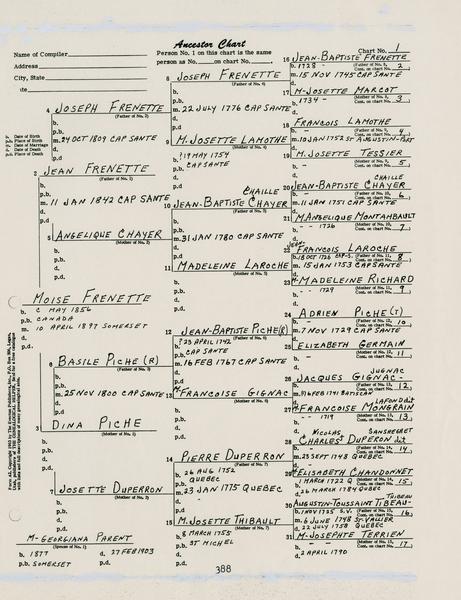 Ancestor Chart
Name of Compiler
Address
City, State
Person No. 1 on this chart is the same
person as No. on chart No.
Chart No. 1
p.b. Place of Birth
m. Date of Marriage
d. Date of Death
p.d. Place of Death
1
MOISE FRENETTE
b. C MAY 1856
p.b. CANADA
m. 10 APRIL 1897 SOMERSET
d.
p.d.
M-GEORGIANA PARENT
(Spouse of No. 1)
b. 1877 d. 27 FEB 1903
p.b. SOMERSET p.d.
2 JEAN FRENETTE
(Father of No. 1)
b.
p.b.
m. 11 JAN 1842 CAP SANTE
d.
p.d.
3 DINA PICHE
(Mother of No. 1)
b.
p.b.
d.
p.d.
4 JOSEPH FRENETTE
(Father of No. 2)
b.
p.b.
m. 24 OCT 1809 CAP SANTE
d.
p.d
5 ANGELIQUE CHAYER
(Mother of No. 2)
b.
p.b.
d.
p.d.
6 BASILE PICHE (R)
(Father of No. 3)
b.
p.b.
m. 25 NOV 1800 CAP SANTE
d.
p.d.
7 JOSETTE DUPERRON
(Mother of No. 3)
b.
p.b.
d.
p.d.
8 JOSEPH FRENETTE
(Father of No. 4)
b.
p.b.
m. 22 JULY 1776 CAP SANTE
d.
p.d.
9 M. JOSETTE LAMOTHE
(Mother of No. 4)
b. 19 MAY 1754
p.b. CAP SANTE
d.
p.d.
CHAILLE
10 JEAN-BAPTISTE CHAYER
(Father of No. 5)
b.
p.b.
m. 31 JAN 1780 CAP SANTE
d.
p.d.
11 MADELEINE LAROCHE
(Mother of No. 5)
b.
p.b.
d.
p.d.
12 JEAN-BAPTISTE PICHE (R)
(Father of No. 6)
b. 23 APRIL 1742
p.b. CAP SANTE
m. 16 FEB 1767 CAP SANTE
d.
p.d.
13 FRANCOISE GIGNAC
(Mother of No. 6)
b.
p.b.
d.
p.d.
14 PIERRE DUPERRON
(Father of No. 7)
b. 26 AUG 1752
p.b. QUEBEC
m. 23 JAN 1775 QUEBEC
d.
p.d.
15 M. JOSETTE THIBAULT
(Mother of No. 7)
b. 8 MARCH 1755
p.b. ST MICHEL
d.
p.d.
16 JEAN-BAPTISTE FRENETTE
b. 1728 - (Father of No. 8, Cont. on chart No. 2)
m. 15 NOV 1745 CAP SANTE
d.
17 M-JOSETTE MARCOT
b. 1734 - (Mother of No. 8, Cont. on chart No. 3)
d.
18 FRANCOIS LAMOTHE
b. (Father of No. 9, Cont. on chart No. 4)
m. 10 JAN 1752 ST AUGUSTIN-PORT
d.
19 M. JOSETTE TESSIER
b. (Mother of No. 9, Cont. on chart No. 5)
d.
CHAILLE
20 JEAN-BAPTISTE CHAYER
b. (Father of No. 10, Cont. on chart No. 6)
m. 11 JAN 1751 CAP SANTE
d.
21 M ANGELIQUE MONTAMBAULT
b. - - 1726 (Mother of No. 10, Cont. on chart No. 7)
d.
JEAN-
22 FRANCOIS LAROCHE
b. 18 OCT 1726 CAP-S. (Father of No. 11, Cont. on chart No. 8)
m. 15 JAN 1753 CAP SANTE
d.
23 M-MADELEINE RICHARD
b. - - 1729 (Mother of No. 11, Cont. on chart No. 9)
d.
24 ADRIEN PICHE (T)
b. (Father of No. 12, Cont. on chart No. 10)
m. 7 NOV 1729 CAP SANTE
d.
25 ELIZABETH GERMAIN
b. (Mother of No. 12, Cont. on chart No. 11)
d.
JUGNAC
26 JACQUES GIGNAC -
b. (Father of No. 13, Cont. on chart No. 12)
m. 16 FEB 1741 BATISCAN
d. LAFOND dit
27 FRANCOISE MONGRAIN
b. - - 1719 (Mother of No. 13, Cont. on chart No. 13)
d.
NICOLAS SANSREGRET
28 CHARLES DUPERON dit
b. (Father of No. 14, Cont. on chart No. 14)
m. 23 SEPT 1748 QUEBEC
d.
29 M-ELISABETH CHANDONNET
b. 1 MARCH 1722 Q (Mother of No. 14, Cont. on chart No. 15)
d. 26 MARCH 1784 QUBEC
THIBEAU
30 AUGUSTIN-TOUSSAINT TIBEAU-
b. 1 NOV 1725 S.V. (Father of No. 15, Cont. on chart No. 16)
m. 6 JUNE 1748 ST VALLIER
d. 22 JULY 1758 QUEBEC
31 M-JOSEPHTE TERRIEN
b. (Mother of No. 15, Cont. on chart No. 17)
d. 2 APRIL 1790
388